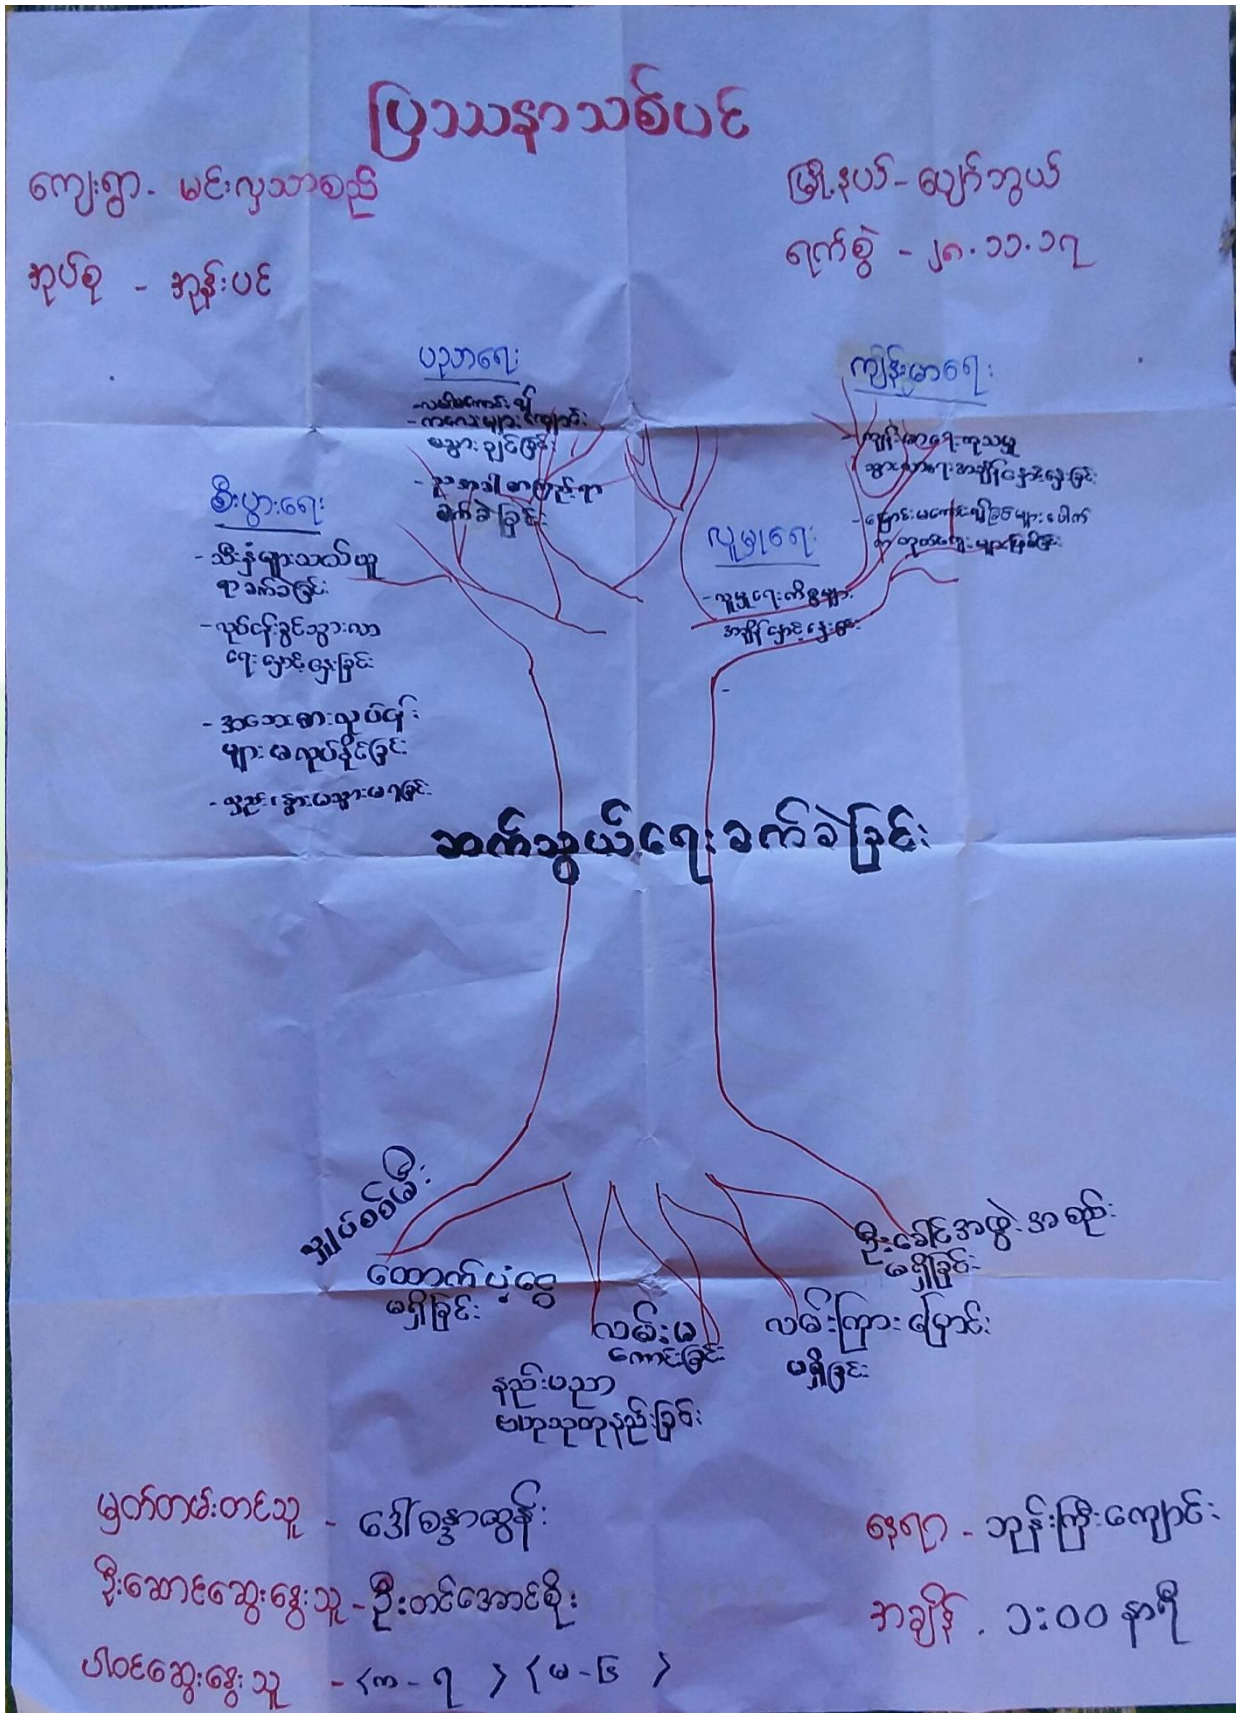 ပြဿနာသစ်ပင်
ကျေးရွာ - မင်းလှသာစည်
မြို့နယ် - ပျော်ဘွယ်
အုပ်စု - အုန်းပင်
ရက်စွဲ - ၂၈.၁၁.၁၇
ပညာရေး
-လမ်းမကောင်း၍
-ကလေးများ ကျောင်း
မသွားချင်ခြင်း
ခက်ခဲခြင်း
ကျန်းမာရေး
-ကျန်းမာရေးကုသမှု
သွားလာရေးအချိန်နှောင့်နှေးခြင်း
စီးပွားရေး
-သီးနှံများသယ်ယူ
ရာခက်ခဲခြင်း
-လုပ်ငန်းခွင်သွားလာ
ရေးနှောင့်နှေးခြင်း
-အသေးစားလုပ်ငန်း
များမလုပ်နိုင်ခြင်း
-လှည်း နွားမသွားမရခြင်း
လူမှုရေး
-လူမှုရေးကိစ္စများ
အချိန်နှောင့်နှေးခြင်း
ဆက်သွယ်ရေးခက်ခဲခြင်း
လျှပ်စစ်မီး
ထောက်ပံ့ငွေ
မရှိခြင်း
လမ်းမ
ကောင်းခြင်း
နည်းပညာ
ဗဟုသုတနည်းခြင်း
လမ်းကြား မြောင်း
မရှိခြင်း
ဦးခေါင်အဖွဲ့အစည်း
မရှိခြင်း
မှတ်တမ်းတင်သူ - ဒေါ်စန္ဒာထွန်း
ဦးဆောင်ဆွေးနွေးသူ - ဦးတင်အောင်စိုး
ပါဝင်ဆွေးနွေးသူ - <ကျ - ၇ > < မ - ၆ >
နေရာ - ဘုန်းကြီးကျောင်း
အချိန် . ၁:၀၀ နာရီ